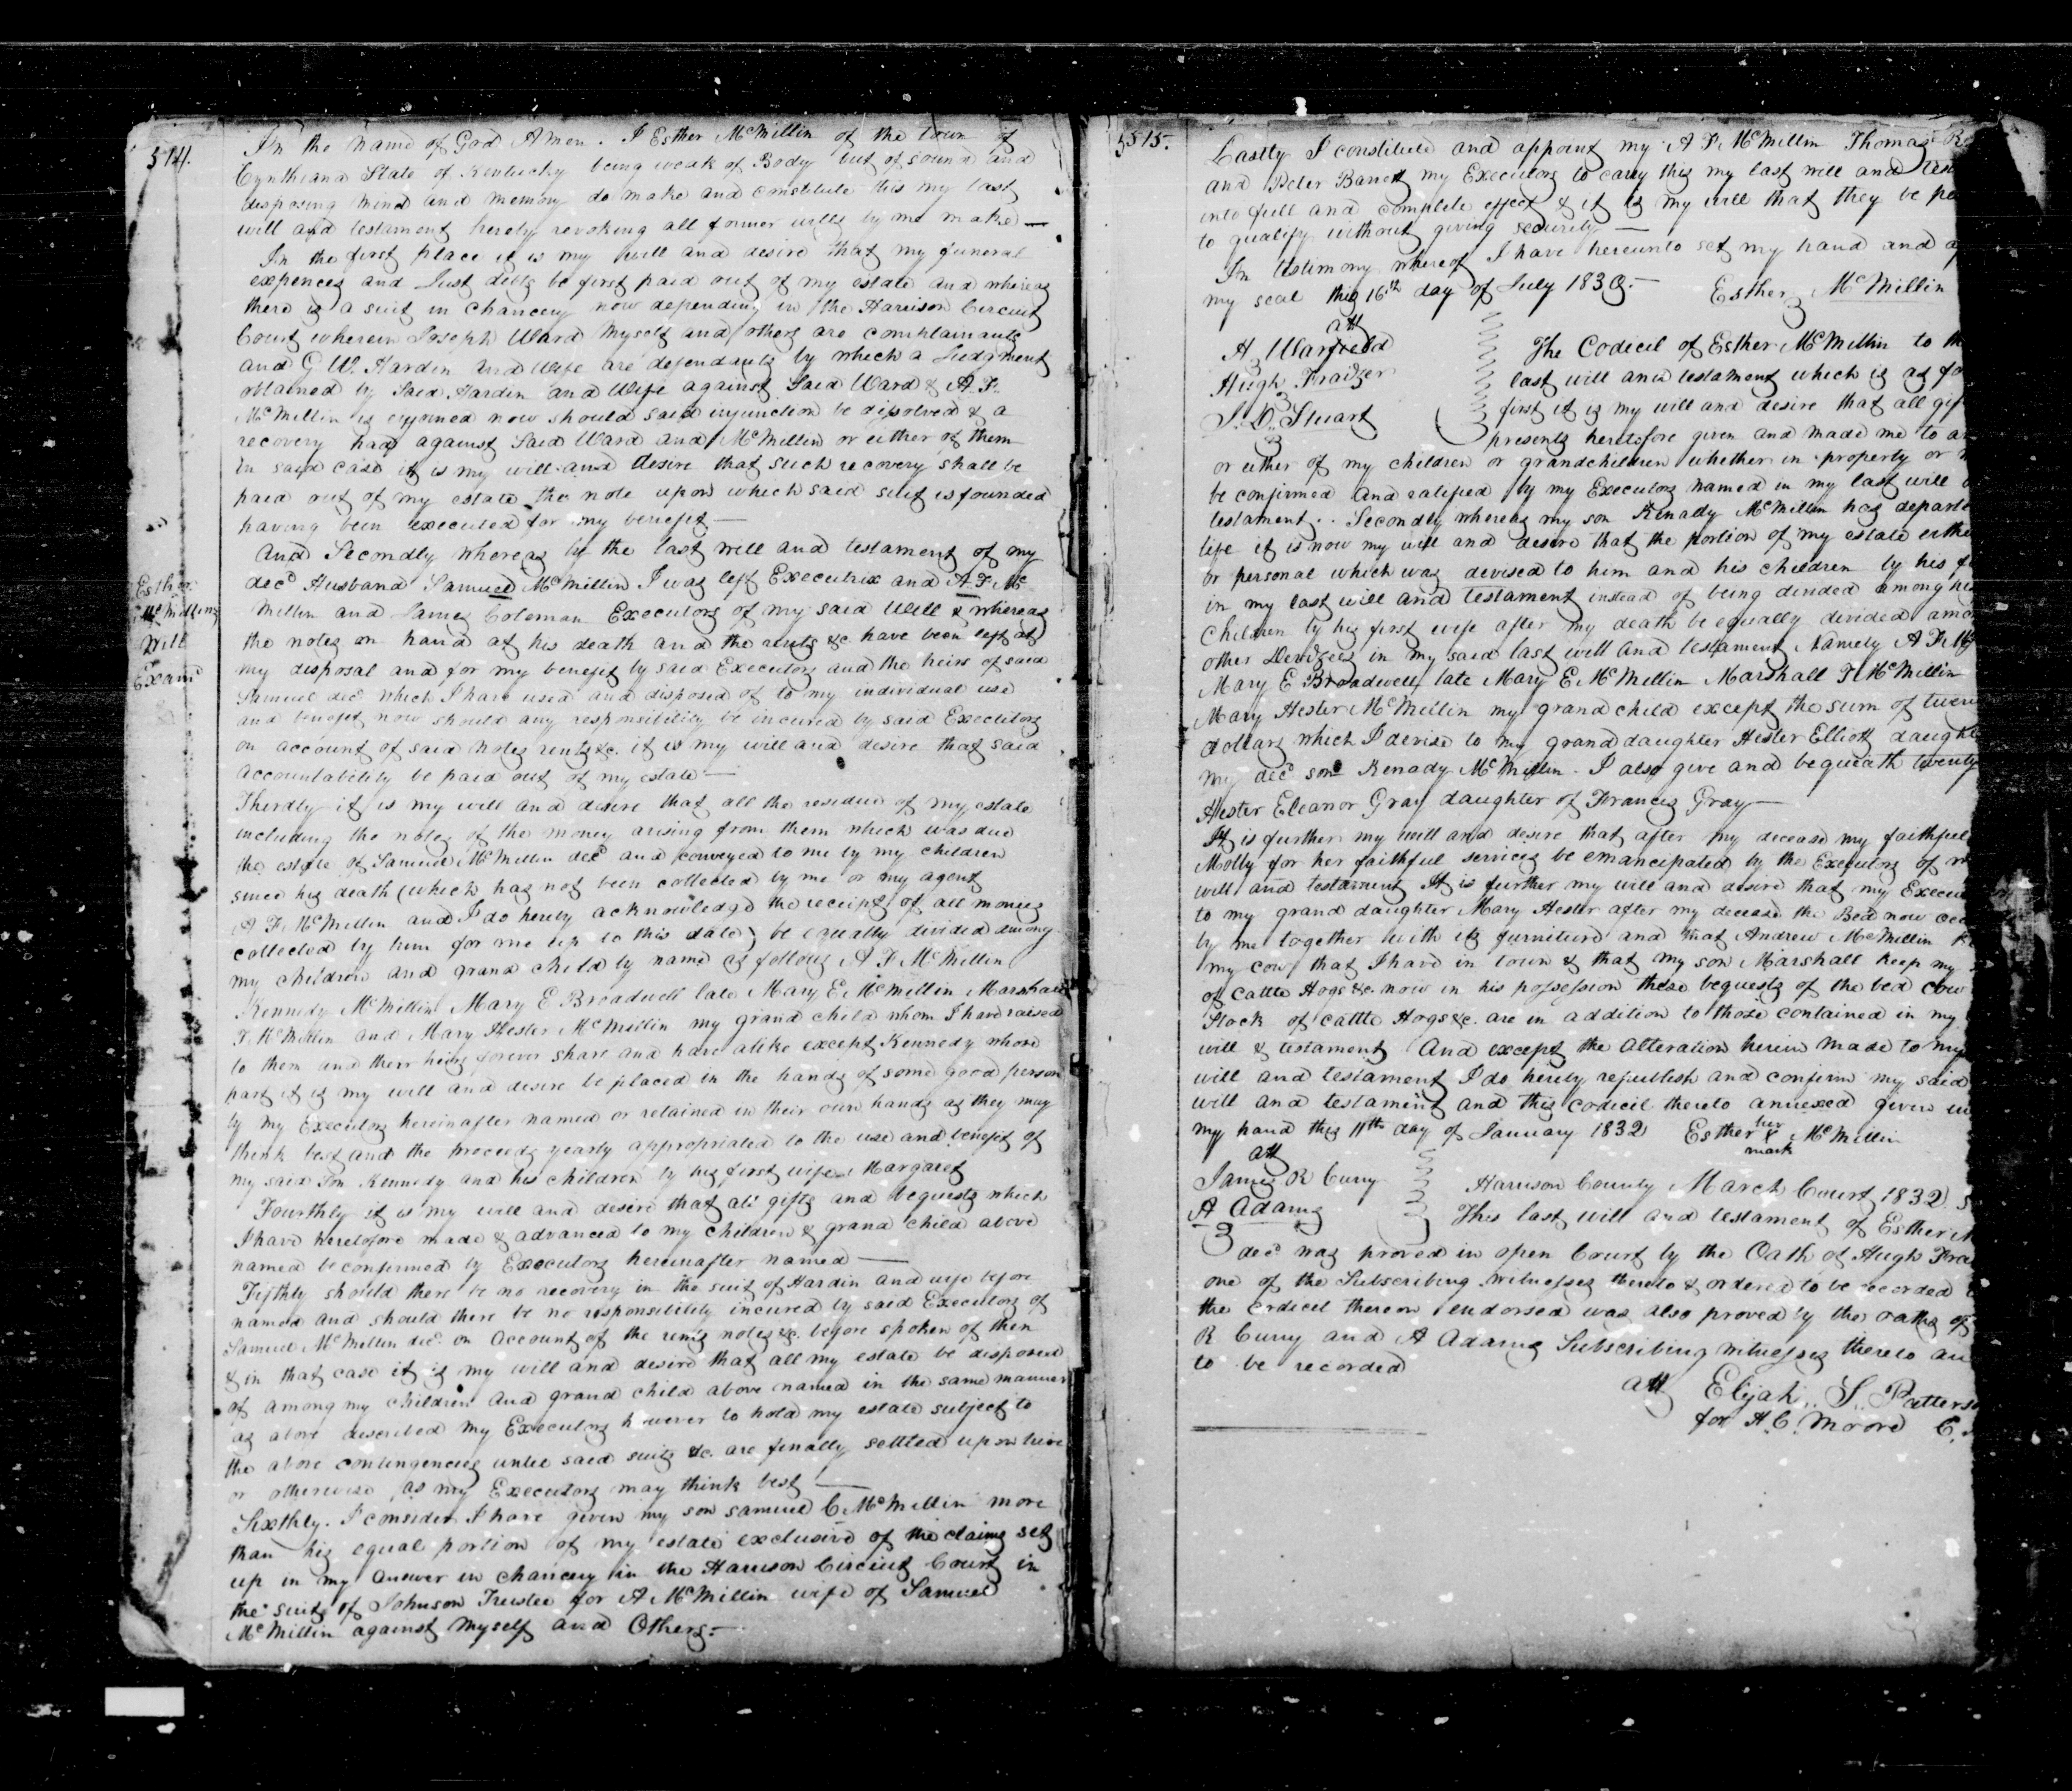 514.
In the name of God Amen. I Esther McMillin of the town of
Cynthiana State of Kentucky being weak of Body but of sound and
disposing mind and memory do make and constitute this my last
will and testament hereby revoking all former wills by me make —
In the first place it is my will and desire that my funeral
expences and Just debts be first paid out of my estate and whereas
there is a suit in chancery now depending in the Harrison Circuit
Court wherein Joseph Ward Myself and others are complainants
and G W. Hardin and Wife are defendants by which a Judgment
obtained by Said Hardin and Wife against Said Ward & A. F.
McMillin is enjoined now should said injunction be dissolved & a
recovery had against Said Ward and McMillin or either of them
in said case it is my will and desire that such recovery shall be
paid out of my estate the note upon which said suit is founded
having been executed for my benefit —
And Secondly whereas by the last will and testament of my
decd Husband Samuel McMillin I was left Executrix and A. F. Mc
Millin and James Coleman Executors of my said Will & whereas
the notes on hand at his death and the rents &c have been left at
my disposal and for my benefit by said Executors and the heirs of said
Samuel decd which I have used and disposed of to my individual use
and benefit now should any responsibility be incured by said Executors
on account of said notes rents &c. it is my will and desire that said
accountability be paid out of my estate —
Esther
McMillins
Will
Examd
Therdly it is my will and desire that all the residue of my estate
including the notes of the money arising from them which was due
the estate of Samuel McMillin decd and conveyed to me by my children
since his death (which has not been collected by me or my agent
A F McMillin and I do hereby acknowledge the receipt of all moneys
collected by him for me up to this date) be equally divided among
my children and grand child by name as follows A F McMillin
Kennedy McMillin Mary E Broadwell late Mary E. McMillin Marshall
F. McMillin and Mary Hester McMillin my grand child whom I have raised
to them and their heirs forever share and have alike except Kennedy whose
part it is my will and desire be placed in the hands of some good person
by my Executors hereinafter named or retained in their own hands as they may
think best and the proceeds yearly appropriated to the use and benefit of
my said Son Kennedy and his children by his first wife Margaret
Fourthly it is my will and desire that all gifts and bequests which
I have heretofore made & advanced to my children & grand child above
named be confirmed by Executors hereinafter named —
Fifthly should there be no recovery in the suit of Hardin and wife before
named and should there be no responsibility incured by said Executors of
Samuel McMillin decd. on Account of the rents notes &c. before spoken of then
& in that case it is my will and desire that all my estate be disposed
of among my children and grand child above named in the same manner
as above described my Executors however to hold my estate subject to
the above contingencies until said suits &c. are finally settled upon
or otherwise as my Executors may think best —
Sixthly. I consider I have given my son Samuel C McMillin more
than his equal portion of my estate exclusive of the claims set
up in my answer in chancery in the Harrison Circuit Court in
the suit of Johnson Trustee for A McMillin wife of Samuel
McMillin against Myself and Others.—
515.
Lastly I constitute and appoint my A F McMillin Thomas
and Peter Barrett my Executors to carry this my last will and
into full and complete effect & it is my will that they be
to qualify without giving security —
In testimony whereof I have hereunto set my hand and
my seal this 16th day of July 1830.— Esther McMillin
att
H Warfield
Hugh Frazier
The Codicil of Esther McMillin to
last will and testament which is as
first it is my will and desire that all
presents heretofore given and made me to
or either of my children or grandchildren whether in property or
be confirmed and ratified by my Executors named in my last will
testament.. Secondly whereas my son Kenady McMillin has
life it is now my will and desire that the portion of my estate
or personal which was devised to him and his children by his
in my last will and testament instead of being divided among
Children by his first wife after my death be equally divided
other Devisees in my said last will and testament Namely A F
Mary E Broadwell late Mary E McMillin Marshall F McMillin
Mary Hester McMillin my grand child except the sum of
dollars which I devise to my grand daughter Hester Elliott
my decd son Kenady McMillin. I also give and bequeath twenty
Hester Eleanor Gray daughter of Francis Gray —
It is further my will and desire that after my decease my faithful
Molly for her faithful services be emancipated by the Executors of
will and testament It is further my will and desire that my
to my grand daughter Mary Hester after my decease the Bed now
by me together with its furniture and that Andrew McMillin
my cow that I have in town & that my son Marshall keep my
of Cattle Hogs &c. now in his possession these bequests of the bed cow
Stock of cattle Hogs &c. are in addition to those contained in my
will & testament And except the alteration herein made to my
will and testament I do hereby republish and confirm my said
will and testament and this codicil thereto annexed given
my hand this 11th day of January 1832 Esther her X mark McMillin
att
James R Curry
A Adams
Harrison County March Court 1832
This last will and testament of Esther
decd was proved in open Court by the Oath of Hugh
one of the Subscribing witnesses thereto & ordered to be recorded
the codicil thereon endorsed was also proved by the oaths of
R Curry and A Adams Subscribing witnesses thereto
to be recorded
att Elijah S.
for H. C. Moore C.